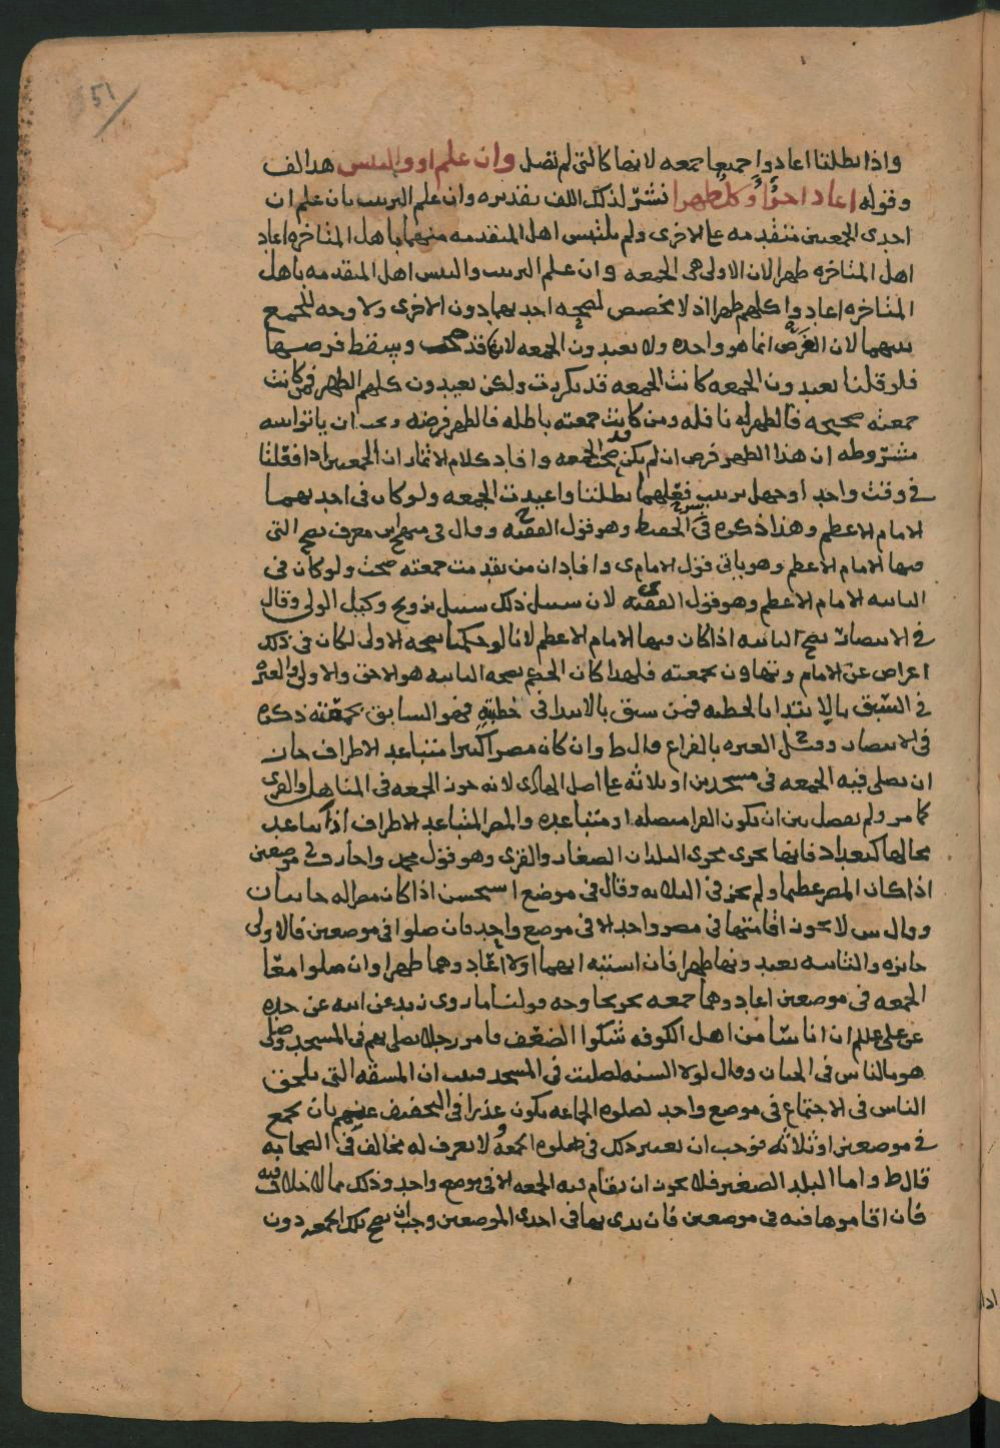 51
واذا بطلتا اعادوا جميعا جمعه لانها كالتي لم تصل وان علم او والتبس هذا لف
وقوله اعاد اخرًا وكلٌ ظهرا نشرٌ لذلك اللف تقديره وان علم الترتيب بان علم ان
احدى الجمعتين متقدمه على الاخرى ولم يلتبس اهل المتقدمه منهما باهل المتاخره اعاد
اهل المتاخره ظهرا لان الاولى هي الجمعه وان علم الترتيب والتبس اهل المتقدمه باهل
المتاخره اعادوا كلهم ظهرا اذ لا مخصص لصحه احديهما دون الاخرى ولا وجه للجمع
بينهما لان الفرض انما هو واحده ولا يعيدون الجمعه لانها قد صحت ويسقط فرضها
فلو قلنا يعيدون الجمعه كانت الجمعه قد تكررت ولكن يعيدون كلهم الظهر فمن كانت
جمعته صحيحه فالظهر له نافله ومن كانت جمعته باطله فالظهر فرضه ويجب ان ياتوا بنيه
مشروطه ان هذا الظهر فرض ان لم يكن قد صحت الجمعه وافاد كلام الاثمار ان الجمعتين اذا فعلتا
في وقت واحد او جهل ترتيب فعلهما بطلتا واعيدت الجمعه ولو كان في احديهما
الامام الاعظم وهذا ذكره في الحفيظ وهو قول الفقيه ح وقال في منهج ابن معرف تصح التي
فيها الامام الاعظم وهو ياتي قول الامام ى وافاد ان من تقدمت جمعته صحت ولو كان في
الثانيه الامام الاعظم وهو قول الفقيه ى لان سبيل ذلك سبيل تزويج وكيل الولي وقال
في الانتصار تصح الثانيه اذا كان فيها الامام الاعظم لانا لو حكمنا بصحه الاولى لكان في ذلك
اعراض عن الامام وتهاون بجمعته فلهذا كان الحكم بصحه الثانيه هو الاحق والاولى والعبره
في السبق بالابتدا بالخطبه فمن سبق بالابتدا في خطبته فهو السابق بجمعته ذكره
في الانتصار وقيل العبره بالفراغ قال ط وان كان مصرا كبيرا متباعد الاطراف جاز
ان يصلى فيه الجمعه في مسجدين او ثلاثه على اصل الهادى لانه جوز الجمعه في المناهل والقرى
كما مر ولم يفصل بين ان يكون القرا متصله او متباعده والمصر المتباعد الاطراف اذا تباعد
محالها كبغداد فانها تجرى مجرى البلدان الصغار والقرى وهو قول محمد واجازه في موضعين
اذا كان المصر عظيما ولم يجز في الثلاثه وقال في موضع استحسن اذا كان مصرا له جانبان
وقال س لا يجوز اقامتها في مصر واحد الا في موضع واحد فان صلوا في موضعين فالاولى
جايزه والثانيه يعيدونها ظهرا فان اشتبه ايهما اولا اعادوهما ظهرا وان صلوا معا
الجمعه في موضعين اعادوهما جمعه تخريجا وجه قولنا ما روى زيد عن ابيه عن جده
عن علي علم ان اناسًا من اهل الكوفه شكوا الضعف فامر رجلا يصلي بهم في المسجد وصلى
هو بالناس في الجبان وقال لولا السنه لصليت في المسجد فبين ان المشقه التي تلحق
الناس في الاجتماع في موضع واحد لصلوه الجماعه يكون عذرا في التخفيف عنهم بان يجمع
في موضعين او ثلاثه فوجب ان يعتبر ذلك في صلوه الجمعه ولا يعرف له مخالف في الصحابه
قال ط واما البلد الصغير فلا يجوز ان يقام فيه الجمعه الا في موضع واحد وذلك مما لا خلاف فيه
فان اقاموها فيه في موضعين فان بدى بها في احدى الموضعين وجب ان تصح تلك الجمعه دون